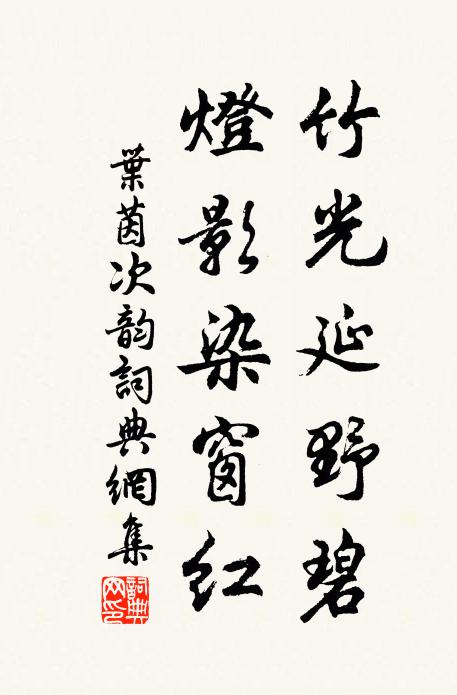 竹光延野碧
燈影染窗紅
葉茵次韵詞典網集
詞典網印